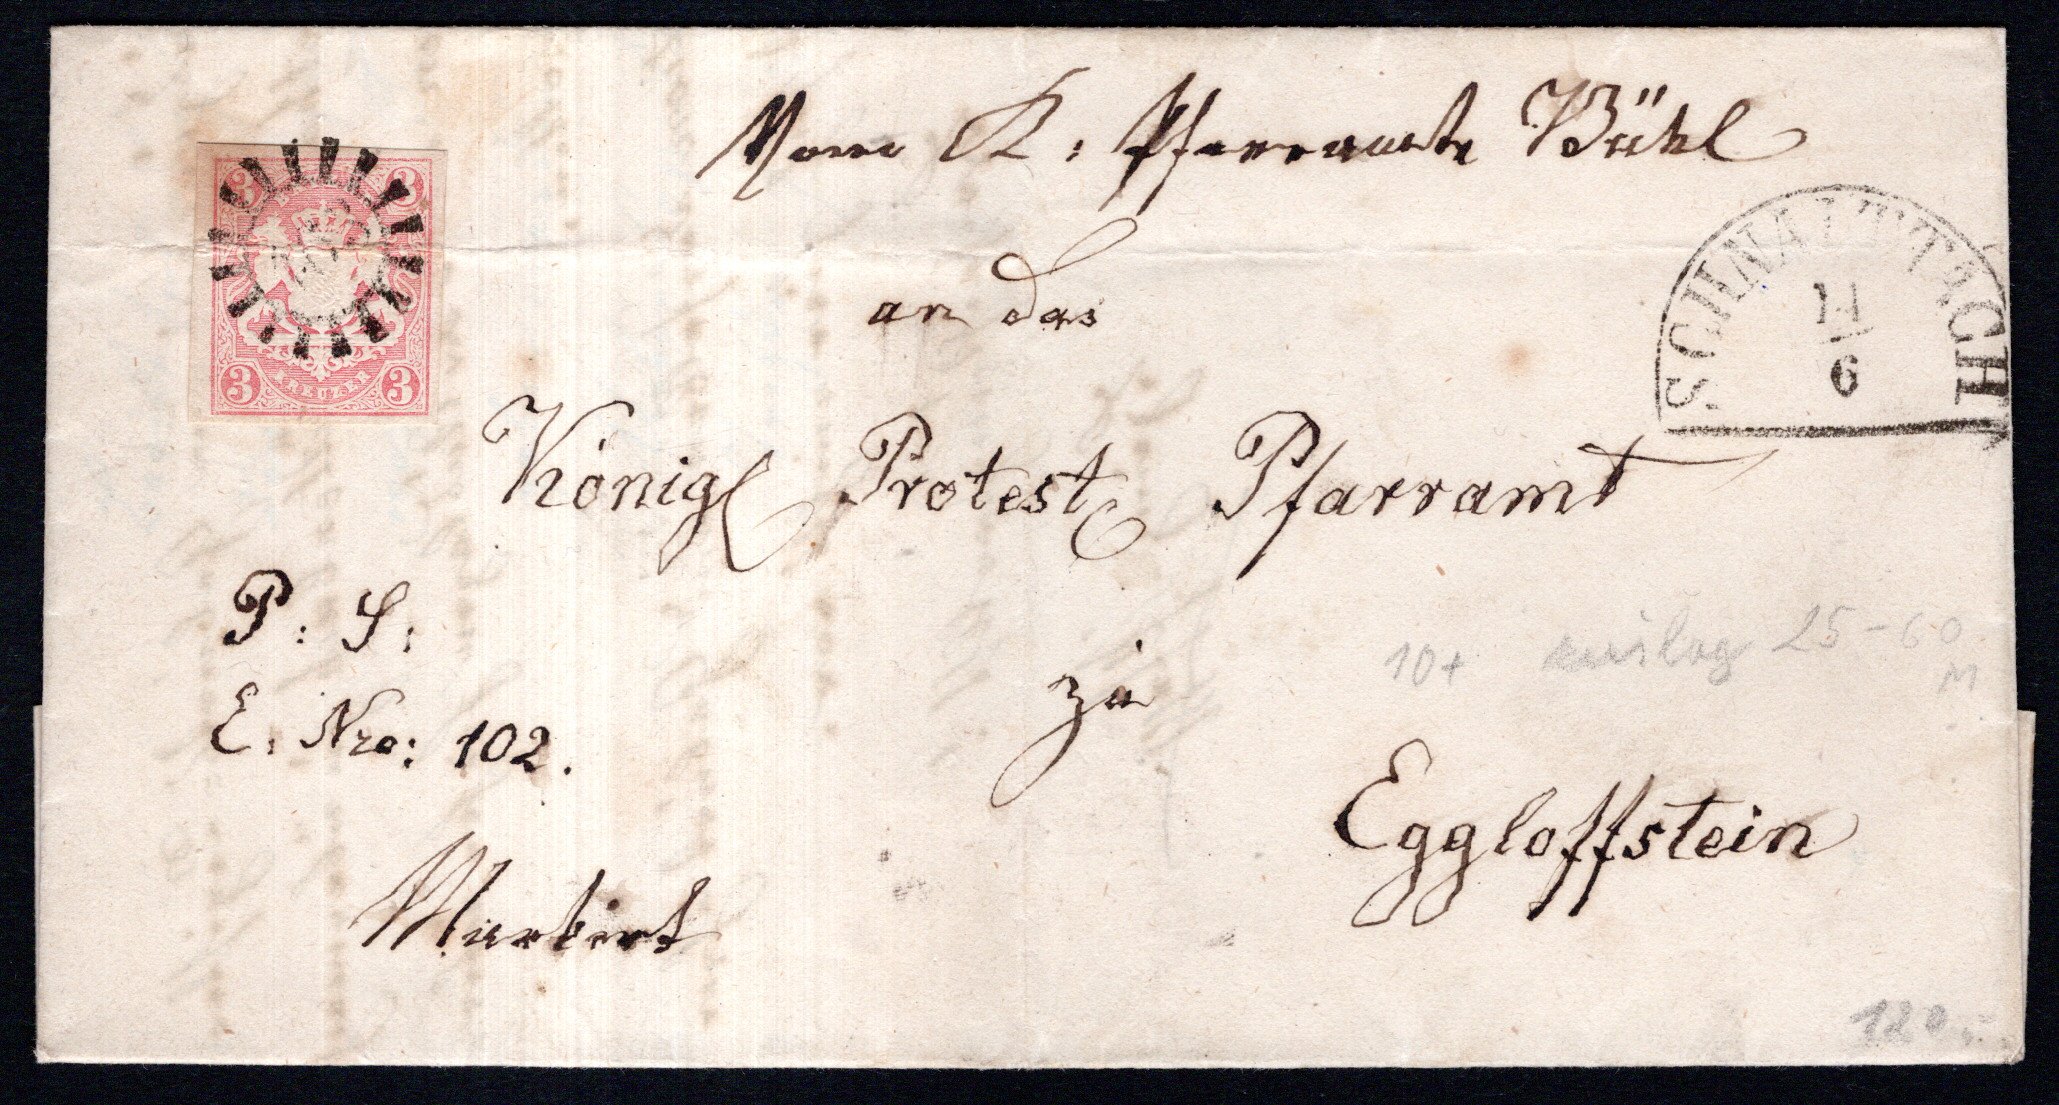 Vom K: Pfarramte Bühl
an das
Königl Protest Pfarramt
zu
Eggloffstein
P: S:
E: Nro: 102.
Markirt
3 3
KREUZER
3 3
SCHNAITTACH
11
6
10+ 25-60
M
120,-